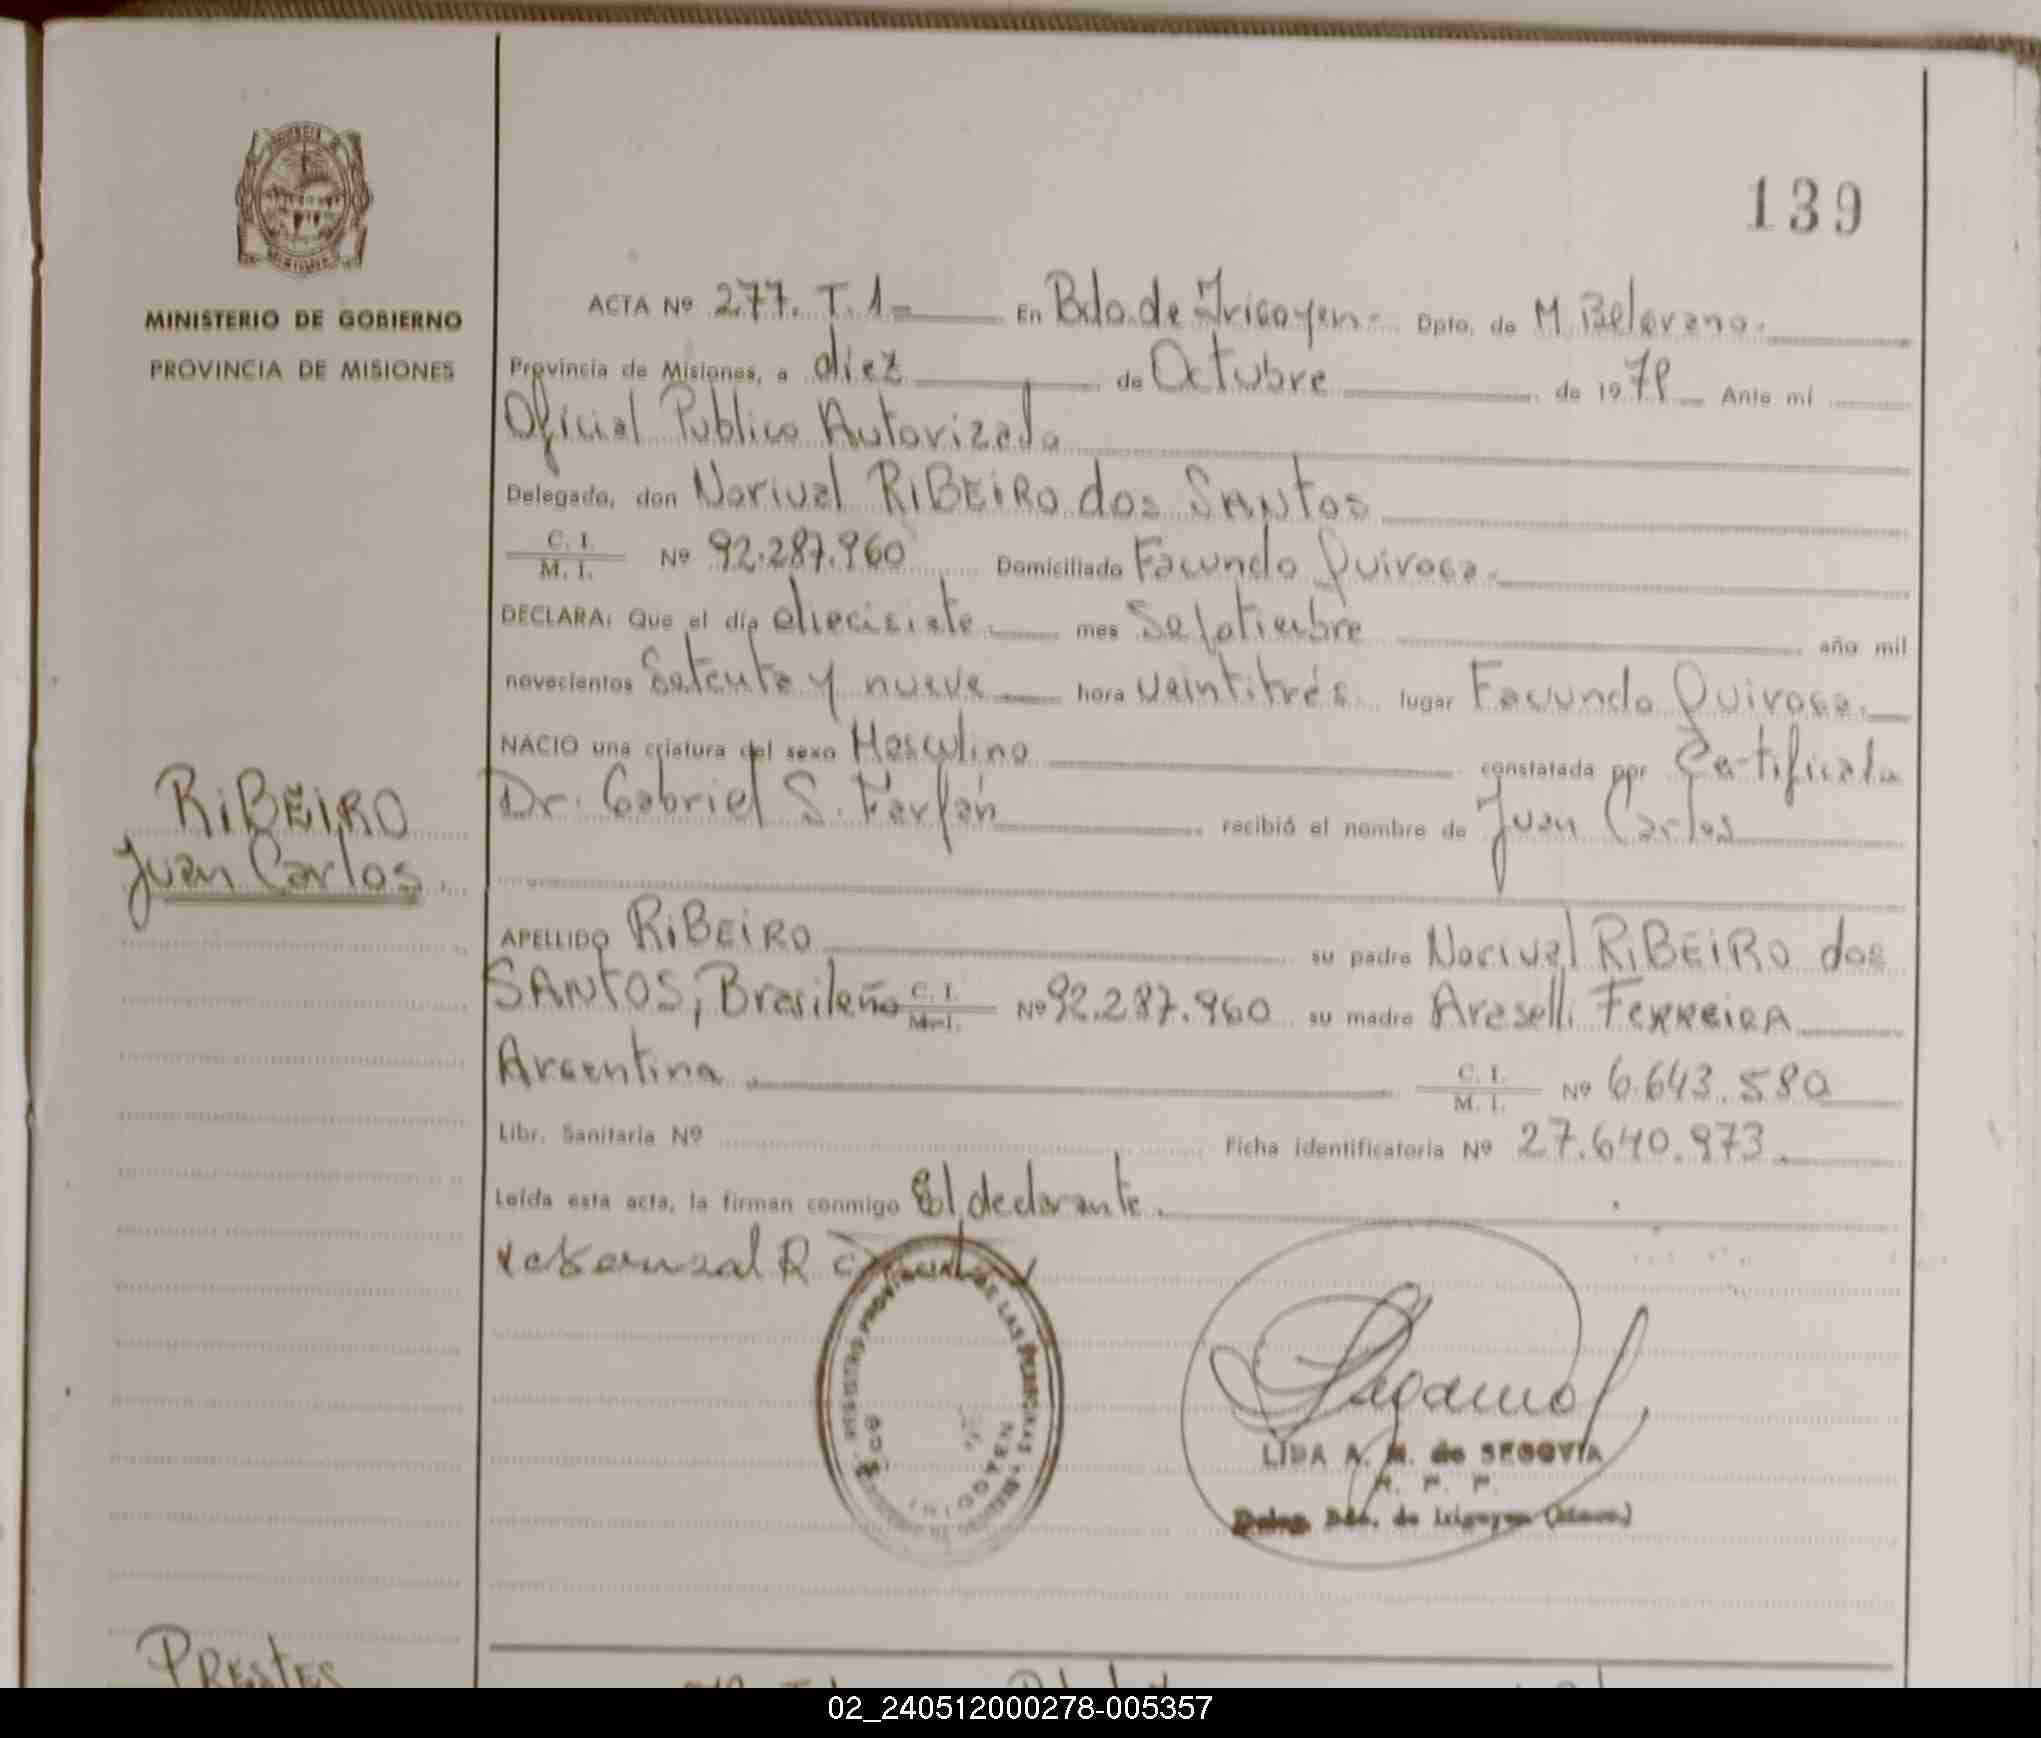 139
MINISTERIO DE GOBIERNO
PROVINCIA DE MISIONES
ACTA Nº 277. T. 1 En Bdo. de Iricoyen Dpto. de M. Belgrano.
Provincia de Misiones, a diez de Octubre de 1979 Ante mí
Oficial Publico Autorizada
Delegado, don Norival RIBEIRO dos SANtos
C. I.
M. I. Nº 92.287.960 Domiciliado Facundo Quiroga.
DECLARA: Que el día diecisiete mes Septiembre año mil
novecientos Setenta y nueve hora veintitrés lugar Facundo Quiroga.
NACIO una criatura del sexo Masculino constatada por Certificado
Dr. Gabriel S. Farfán recibió el nombre de Juan Carlos
RiBEiRO
Juan Carlos
APELLIDO RiBEiRO su padre Norival RiBEiRO dos
SANtOS, Brasileño C. I.
M. I. Nº 92.287.960 su madre Araselli FERREIRA
Argentina C. I.
M. I. Nº 6.643.580
Libr. Sanitaria Nº Ficha identificatoria Nº 27.640.973.
Leída esta acta, la firman conmigo El declarante.
REGISTRO PROVINCIAL DE LAS PERSONAS
IRIGOYEN
LIDA A. M. de SEGOVIA
Deleg. Bdo. de Irigoyen (Mnes.)
PRESTES
02_240512000278-005357